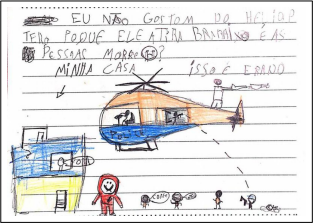 EU NÃO GOSTOM DO HELIOP
TERO POQUE ELE ATIRA BAIXO E AS
PESSOAS MORRE?
MINHA CASA ISSO É ERADO
ESCOLA